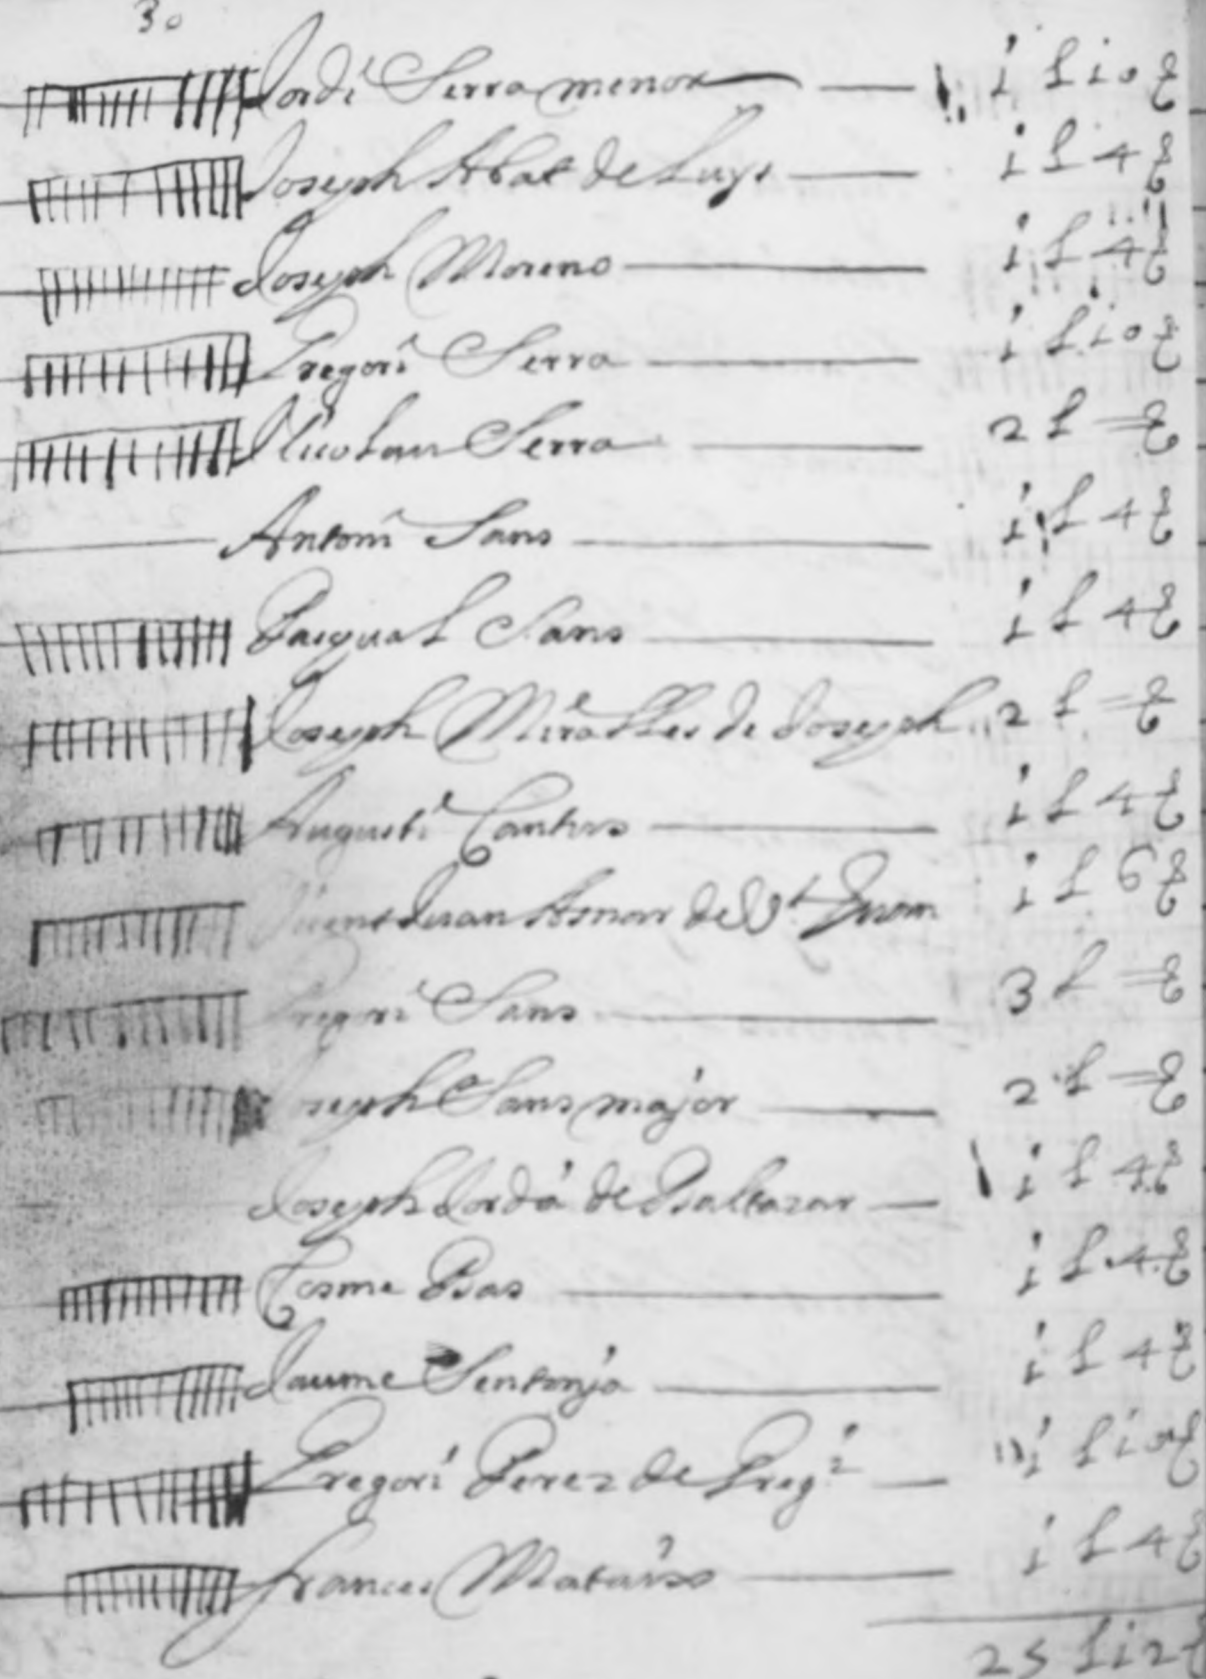 30
Jordi Serra menor — 1 £ 10 ß
Joseph Abat de Luys — 1 £ 4 ß
Joseph Moreno — 1 £ 4 ß
Gregori Serra — 1 £ 10 ß
Nicolau Serra — 2 £ = ß
Antoni Sans — 1 £ 4 ß
Pasqual Sans — 1 £ 4 ß
Joseph Miralles de Joseph 2 £ = ß
Augusti Cantos — 1 £ 4 ß
Vicent Juan Asnar de Vt 1 £ 6 ß
Gregori Sans — 3 £ = ß
Joseph Sans major — 2 £ = ß
Joseph Jordá de Baltazar — 1 £ 4 ß
Cosme Bas — 1 £ 4 ß
Jaume Sentonja — 1 £ 4 ß
Gregori Perez de Gregi — 1 £ 10 ß
Frances Mataix — 1 £ 4 ß
25 £ 12 ß